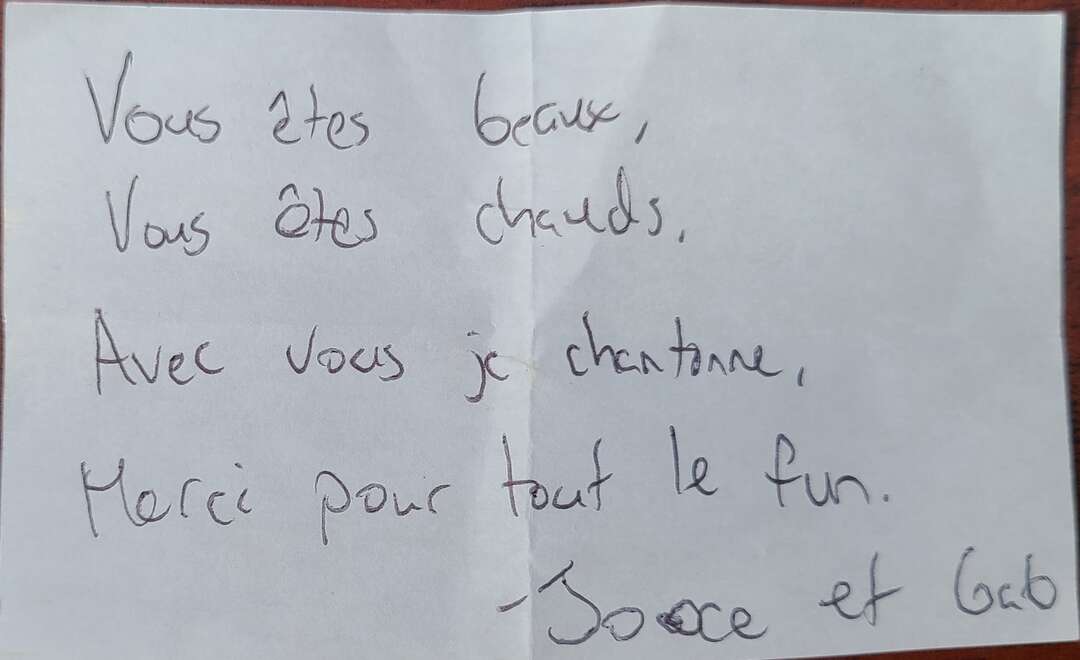 Vous êtes beaux,
Vous êtes chauds.
Avec vous je chantonne,
Merci pour tout le fun.
- et Gab